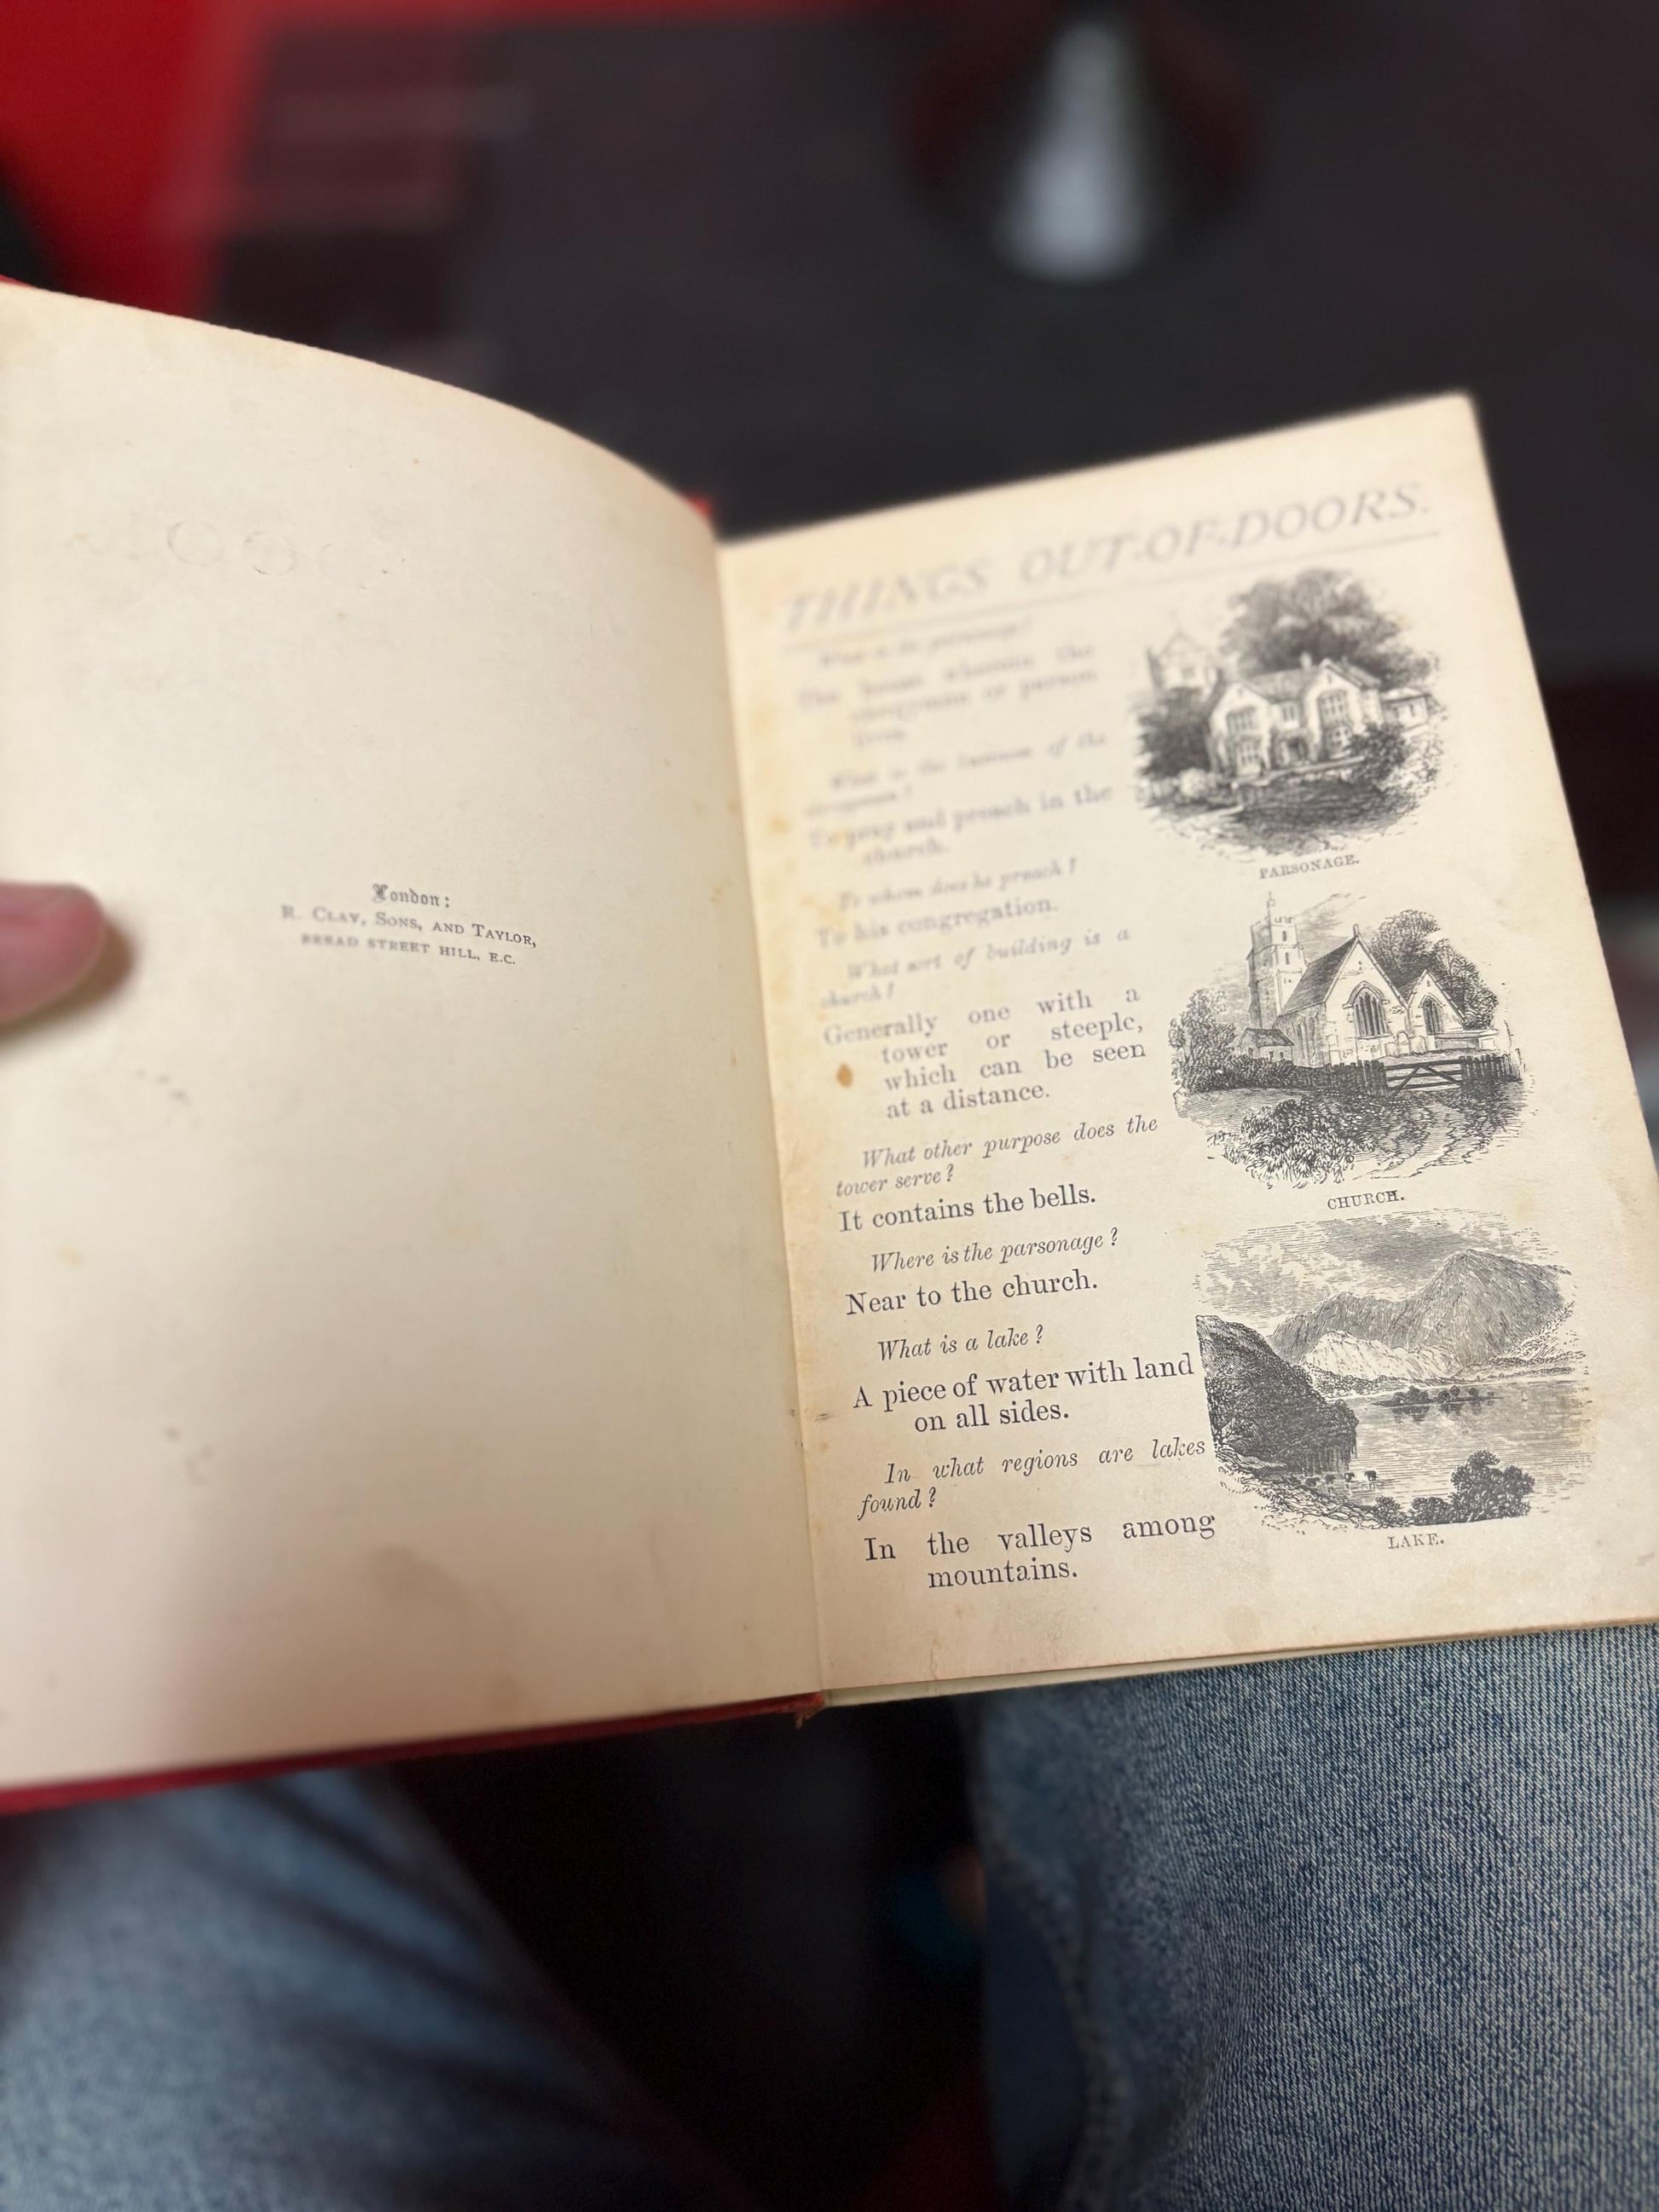 London:
R. Clay, Sons, and Taylor,
BREAD STREET HILL, E.C.
THINGS OUT-OF-DOORS.
What is the parsonage?
The house wherein the
clergyman or parson
lives.
What is the business of the
clergyman?
To pray and preach in the
church.
To whom does he preach?
To his congregation.
What sort of building is a
church?
Generally one with a
tower or steeple,
which can be seen
at a distance.
What other purpose does the
tower serve?
It contains the bells.
Where is the parsonage?
Near to the church.
What is a lake?
A piece of water with land
on all sides.
In what regions are lakes
found?
In the valleys among
mountains.
PARSONAGE.
CHURCH.
LAKE.